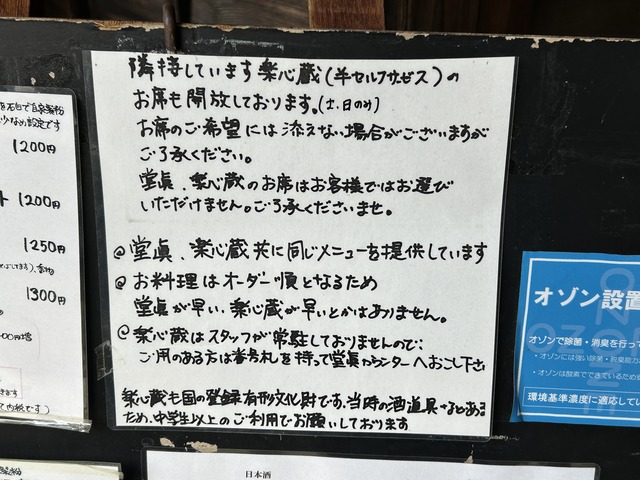 隣接しています楽心蔵(半セルフサービス)の
お席も開放しております。(土、日のみ)
お席のご希望には添えない場合がございますが
ご了承ください。
堂眞、楽心蔵のお席はお客様ではお選び
いただけません。ご了承くださいませ。
@堂眞、楽心蔵共に同じメニューを提供しています
@お料理はオーダー順となるため
堂眞が早い、楽心蔵が早いとかはありません。
@楽心蔵はスタッフが常駐しておりませんので:
ご用のある方は番号札を持って堂眞カウンターへおこし下さい
楽心蔵も国の登録有形文化財です、当時の酒道具などある
ため、中学生以上のご利用でお願いしております
1200円
1200円
1250円
1300円
オゾン設置
オゾンで除菌・消臭を行って
・オゾンには強い除菌・脱臭能力
・オゾンは酸素でできているため
環境基準濃度に適応してい
日本酒